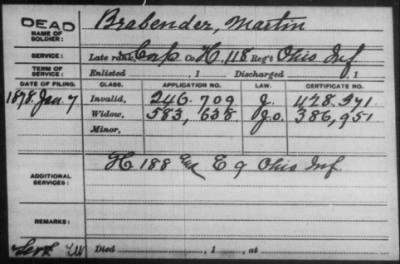 DEAD
NAME OF SOLDIER: Brabender, Martin
SERVICE: Late rank, Corp Co. H, 118 Reg't Ohio Inf.
TERM OF SERVICE: Enlisted , 1 Discharged , 1
DATE OF FILING. CLASS. APPLICATION NO. LAW. CERTIFICATE NO.
1878. Jan. 7 Invalid, 246.709 428.371
Widow, 583,638 386,951
Minor,
ADDITIONAL SERVICES: H 188 & C 9 Ohio Inf
REMARKS:
Died , 1 , at